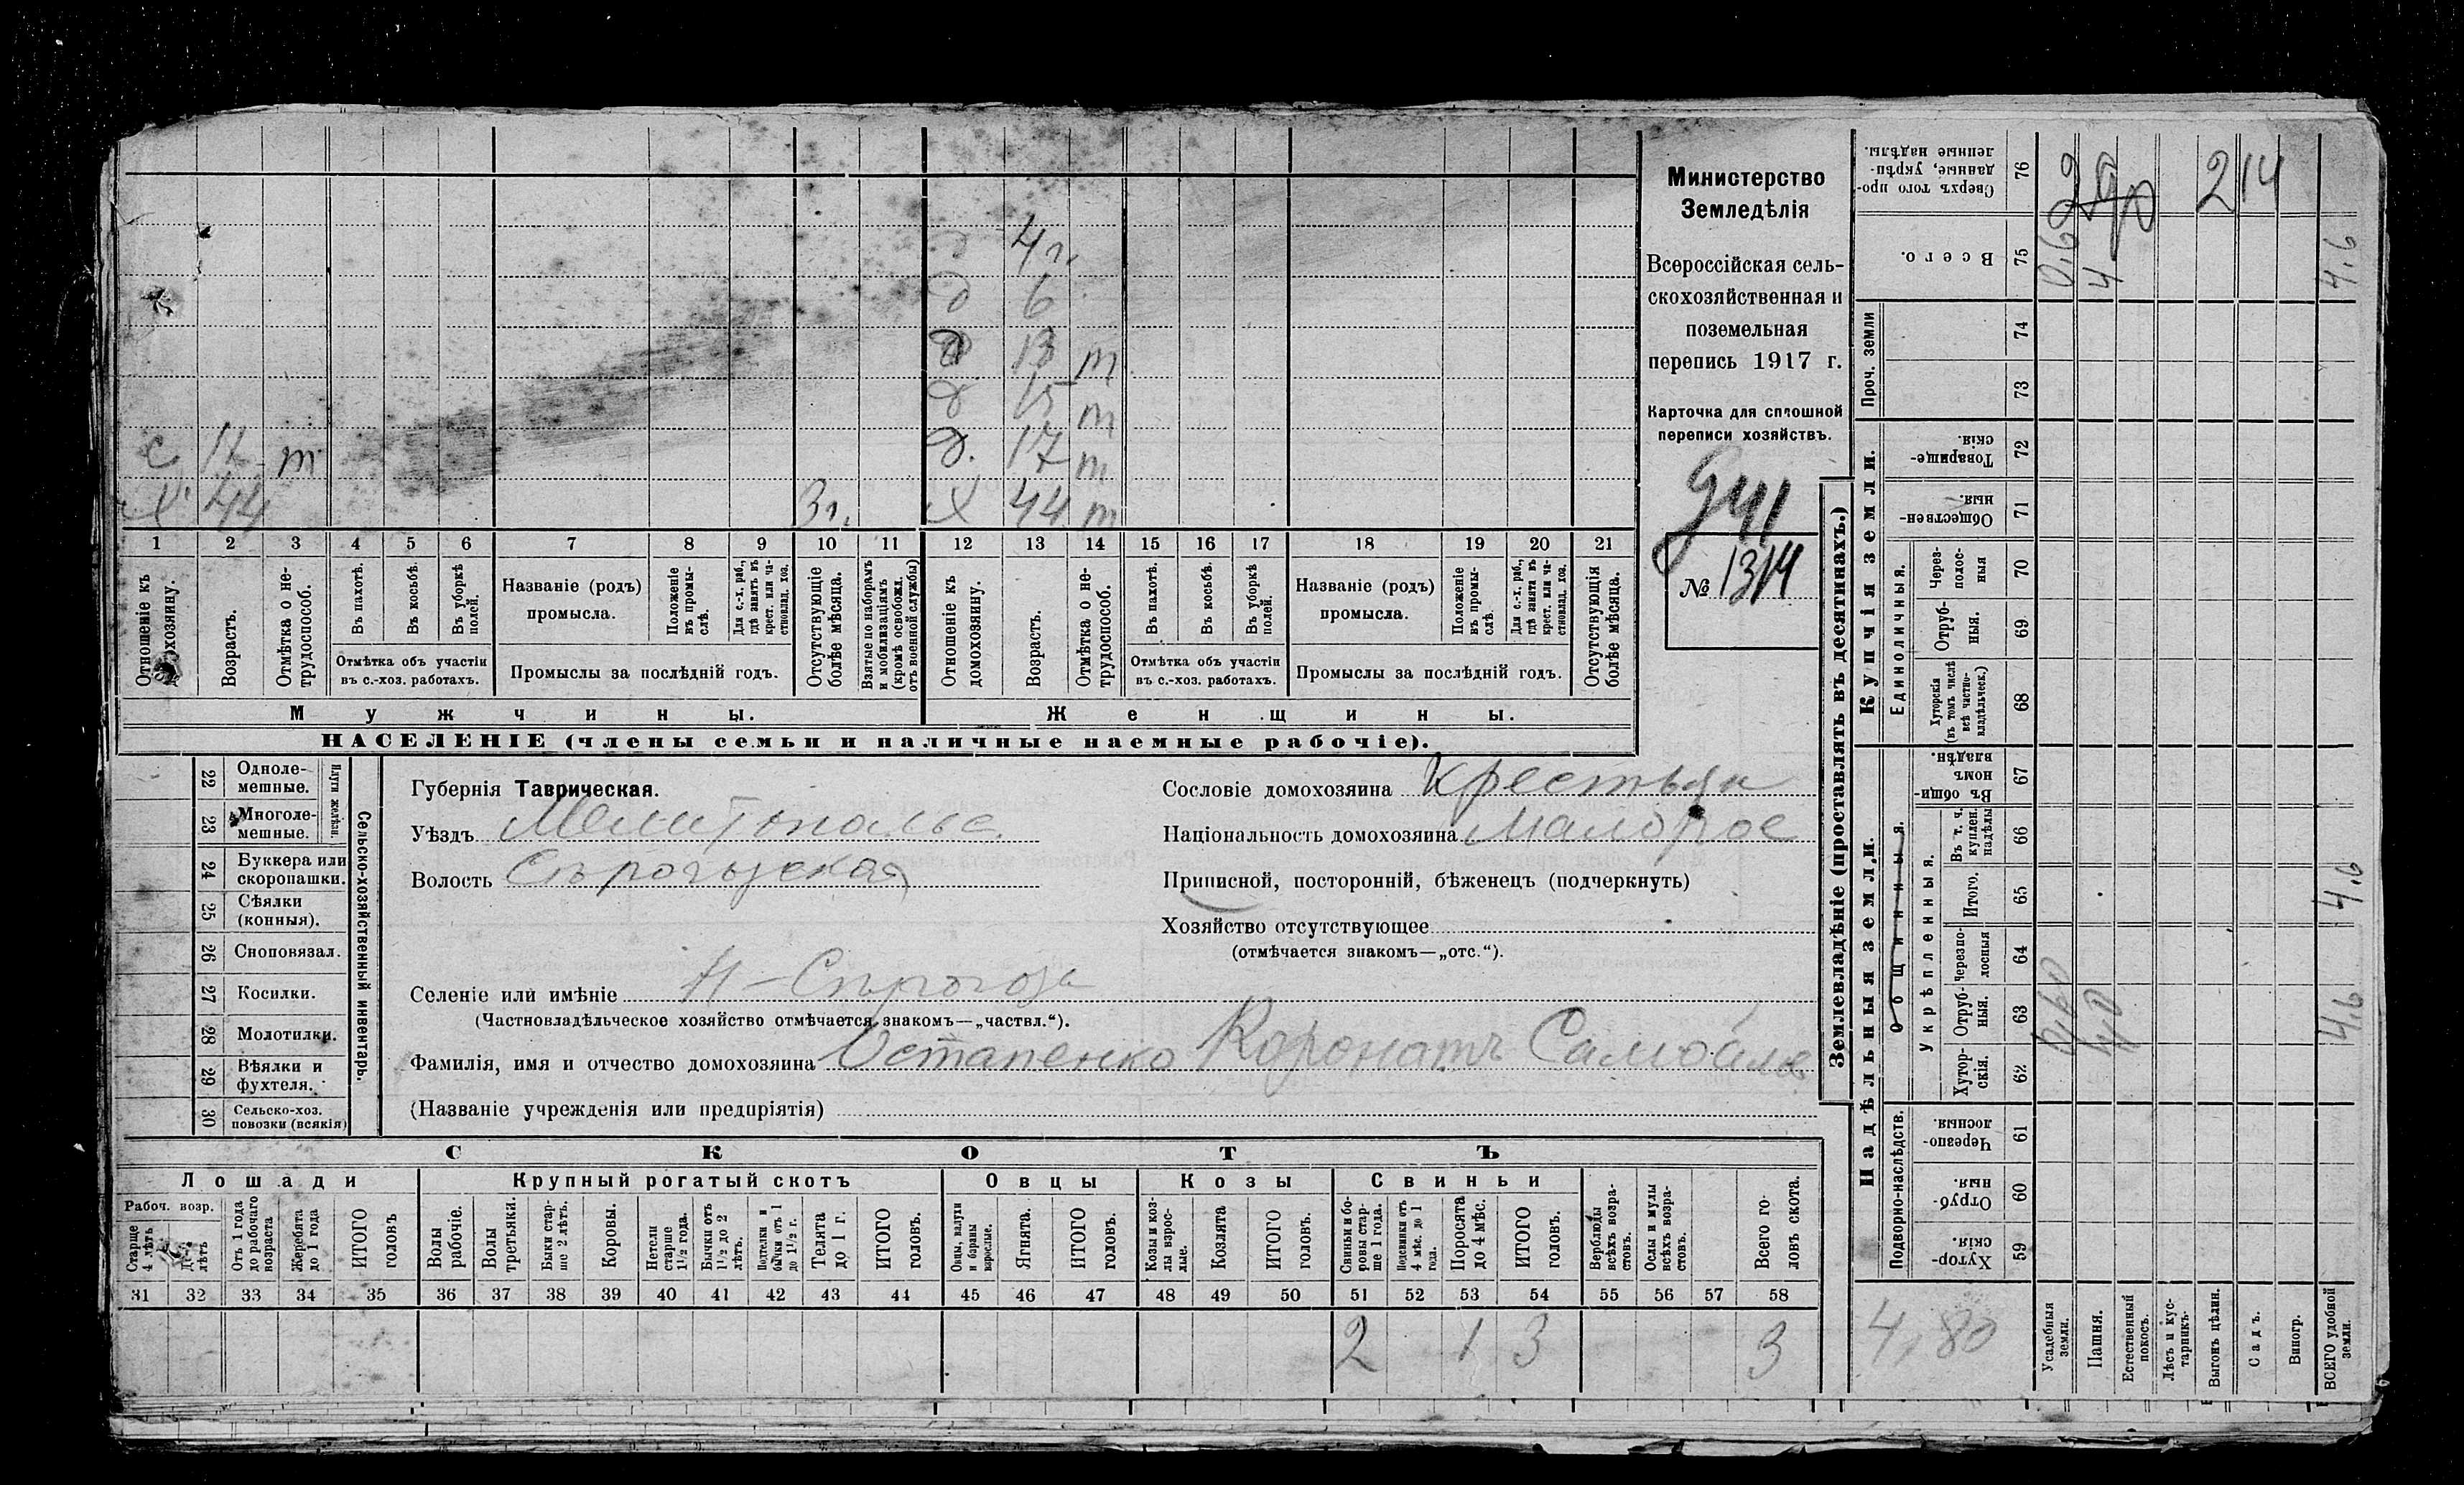 Министерство
Земледѣлія
Всероссійская сель-
скохозяйственная и
поземельная
перепись 1917 г.
Карточка для сплошной
переписи хозяйствъ.
№ 1314
4 г.
6
13 т
15 т
с 11 т
д. 17 т
х 44 3 г. х 44 т
1 2 3 4 5 6 7 8 9 10 11 12 13 14 15 16 17 18 19 20 21
Отношеніе къ домохозяину.
Возрастъ.
Отмѣтка о не-трудоспособ.
Въ пахотѣ.
Въ косьбѣ.
Въ уборкѣ полей.
Отмѣтка объ участіи
въ с.-хоз. работахъ.
Названіе (родъ)
промысла.
Положеніе въ промы-слѣ.
Для с.-х. раб., гдѣ занятъ въ крест. или ча-стновлад. хоз.
Промыслы за послѣдній годъ.
Отсутствующіе болѣе мѣсяца.
Взятые по наборамъ и мобилизаціямъ (кромѣ освобожл. отъ военной службы)
Отношеніе къ домохозяину.
Возрастъ.
Отмѣтка о не-трудоспособ.
Въ пахотѣ.
Въ косьбѣ.
Въ уборкѣ полей.
Отмѣтка объ участіи
въ с.-хоз. работахъ.
Названіе (родъ)
промысла.
Положеніе въ промы-слѣ
Для с.-х. раб., гдѣ занята въ крест. или ча-стновлад. хоз.
Промыслы за послѣдній годъ.
Отсутствующія болѣе мѣсяца.
Мужчины.
Женщины.
НАСЕЛЕНІЕ (члены семьи и наличные наемные рабочіе).
Сельско-хозяйственный инвентарь.
Плуги желѣзн.
22 Одноле-мешные.
23 Многоле-мешные.
24 Буккера или скоропашки.
25 Сѣялки (конныя).
26 Сноповязал.
27 Косилки.
28 Молотилки.
29 Вѣялки и фухтеля.
30 Сельско-хоз. повозки (всякія)
Губернія Таврическая.
Уѣздъ Мелитопольс.
Волость Сѣрогозская
Селеніе или имѣніе Н-Сѣрогозы
(Частновладѣльческое хозяйство отмѣчается знакомъ—„частвл.“).
Фамилія, имя и отчество домохозяина Остапенко Коронатъ Самойлов
(Названіе учрежденія или предпріятія)
Сословіе домохозяина Крестьян
Національность домохозяина Малорос
Приписной, посторонній, бѣженецъ (подчеркнуть)
Хозяйство отсутствующее
(отмѣчается знакомъ—„отс.“).
СКОТЪ
Лошади
Крупный рогатый скотъ
Овцы
Козы
Свиньи
Рабоч. возр.
Старше 4 лѣтъ
лѣтъ
Отъ 1 года до рабочаго возраста
Жеребята до 1 года
ИТОГО головъ
Волы рабочіе.
Волы третьяки.
Быки стар-ше 2 лѣтъ.
Коровы.
Нетели старше 1½ года.
Бычки отъ 1½ до 2 лѣтъ.
Подтелки и бычки отъ 1 до 1½ г.
Телята до 1 г.
ИТОГО головъ.
Овцы, валухи и бараны взрослые.
Ягнята.
ИТОГО головъ.
Козы и коз-лы взрос-лые.
Козлята
ИТОГО головъ.
Свиньи и бо-ровы стар-ше 1 года.
Подсвинки отъ 4 мѣс. до 1 года.
Поросята до 4 мѣс.
ИТОГО головъ.
Верблюды всѣхъ возра-стовъ.
Ослы и мулы всѣхъ возра-стовъ.
Всего го-ловъ скота.
31 32 33 34 35 36 37 38 39 40 41 42 43 44 45 46 47 48 49 50 51 52 53 54 55 56 57 58
2 1 3 3
Землевладѣніе (проставлять въ десятинахъ.)
Купчія земли.
Надѣльныя земли.
Сверхъ того про-данные, укрѣп-ленные надѣлы. 76 2 14
Всего. 75 0.6 4 4.6
Проч. земли
74
73
Товарище-скія. 72
Обществен-ныя. 71
Единоличныя.
Через-полос-ныя 70
Отруб-ныя. 69
Хуторскія (въ томъ числѣ всѣ частно-владѣльческ.) 68
Въ общи-номъ владѣн. 67
Общинныя.
Укрѣпленныя.
Въ т. ч. куплен. надѣлы 66
Итого. 65 4.6
Черезпо-лосныя 64
Отруб-ныя. 63 4.6
Хутор-скія. 62
Подворно-наслѣдств.
Черезпо-лосныя. 61
Отруб-ныя. 60
Хутор-скія. 59
4.80
Усадебныя земли.
Пашня.
Естественный покосъ.
Лѣсъ и кус-тарникъ.
Выгонъ цѣлин.
Садъ.
Виногр.
ВСЕГО удобной земли.